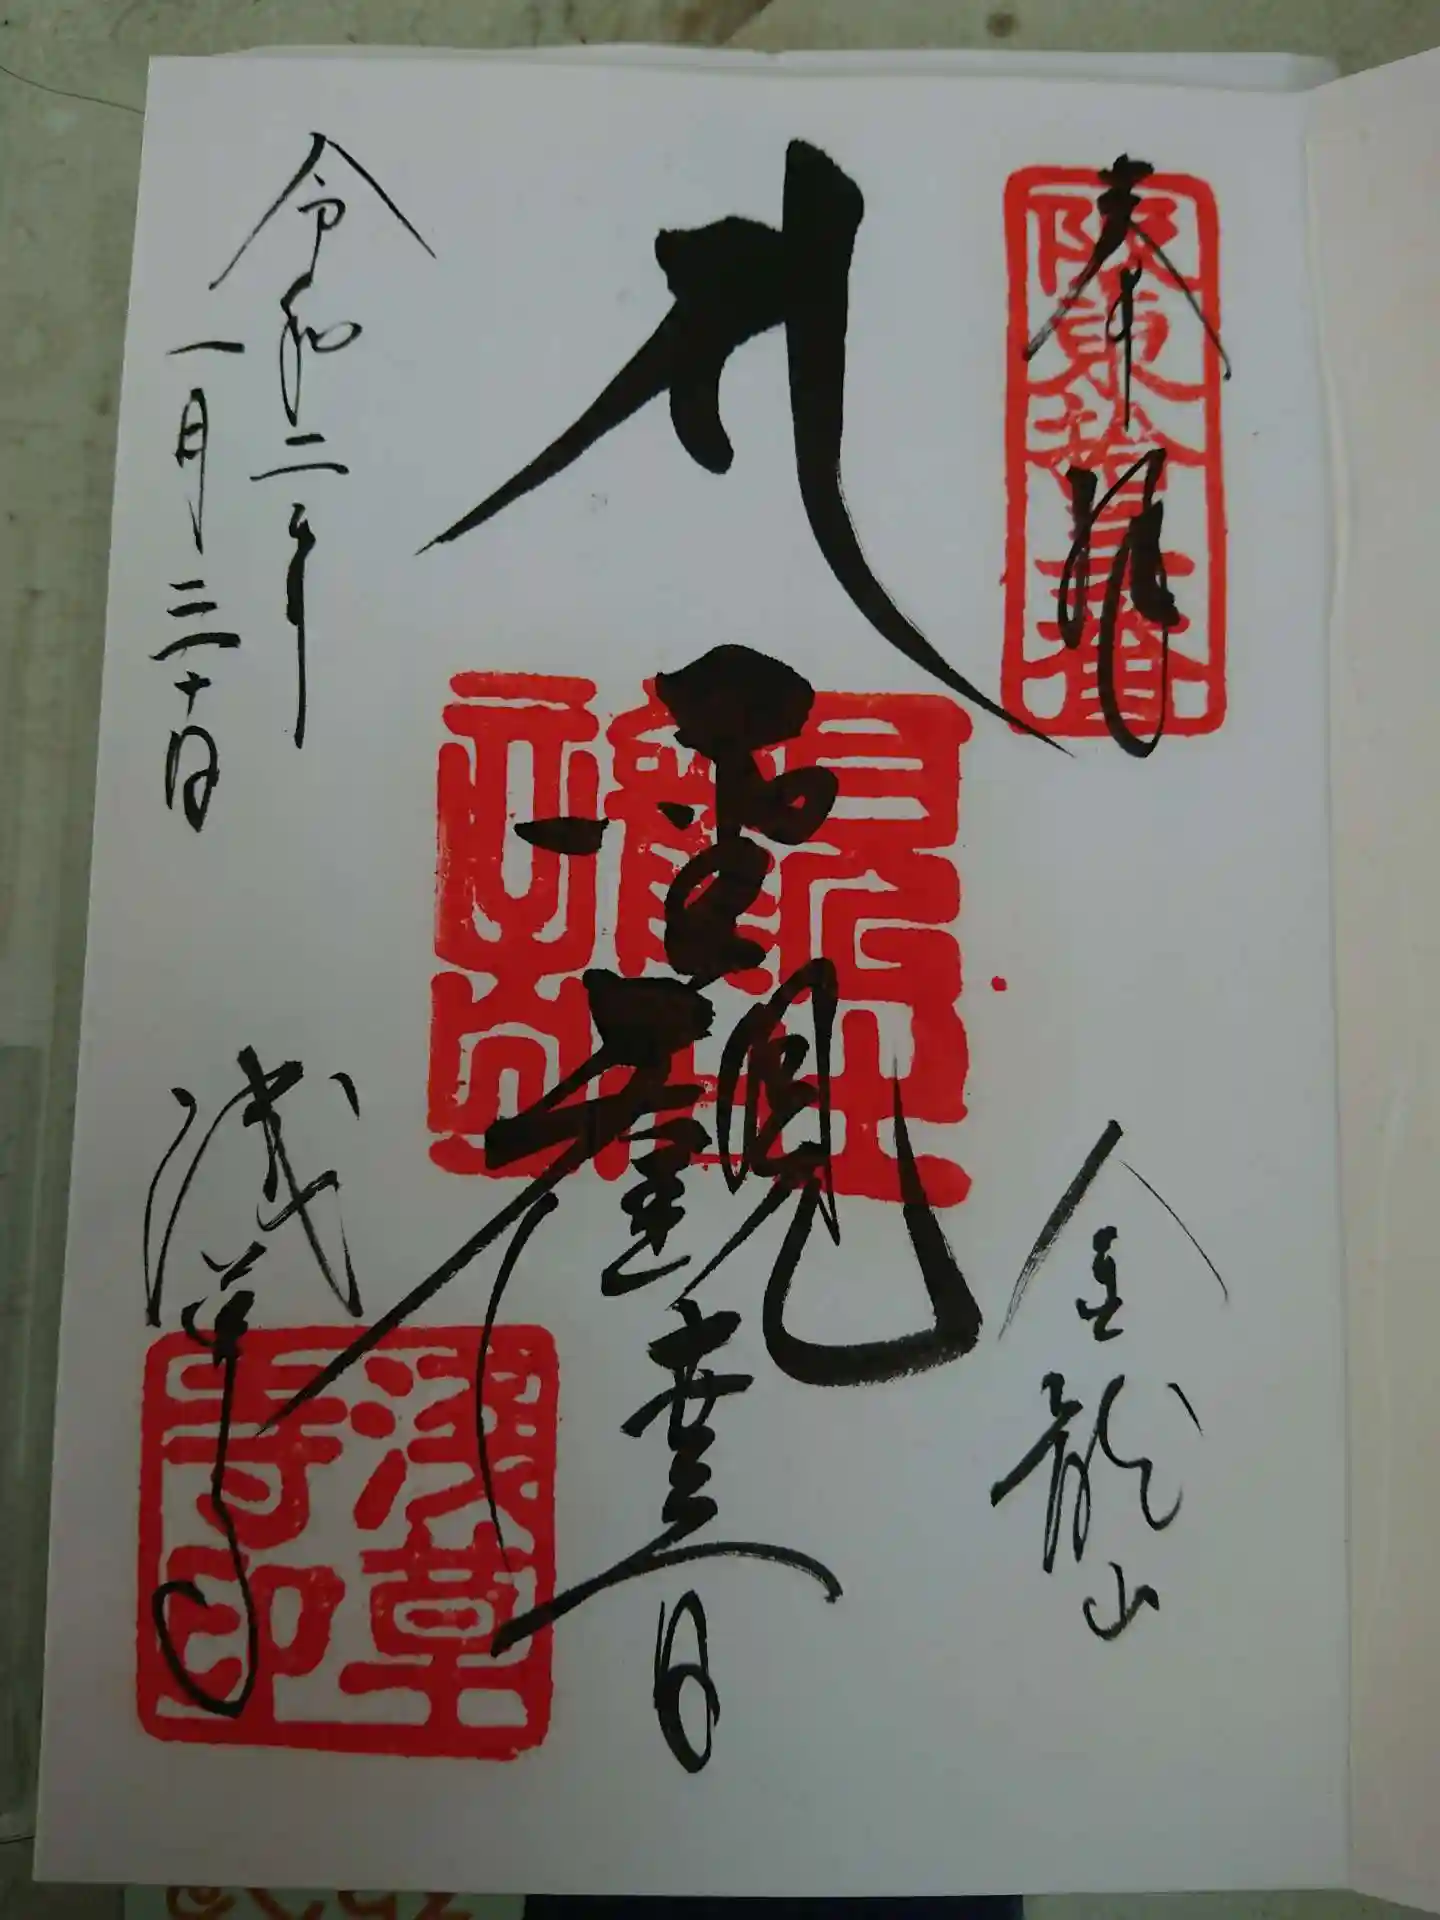 奉拝
坂東拾三番
金龍山
聖観世音
浅草寺印
令和二年
一月三十日
浅草寺